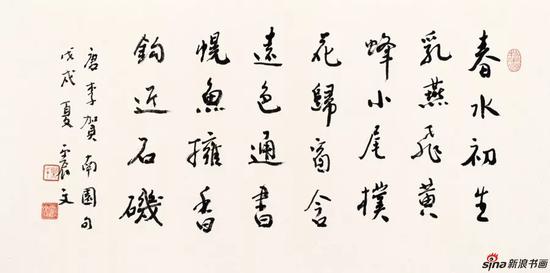 春水初生
乳燕飛黃
蜂小尾撲
花歸窗含
遠色通書
幌魚擁香
鈎近石磯
唐李賀南園句
戊戌夏文
sina新浪书画